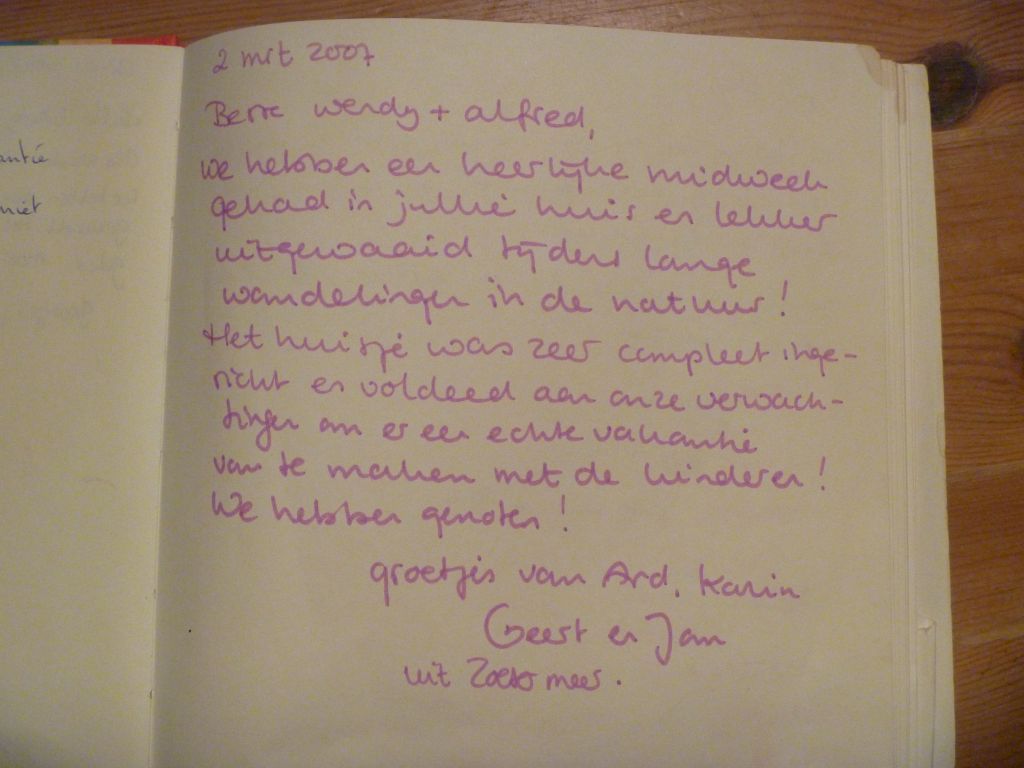 antié
niet
2 mrt 2007
Beste Wendy + Alfred,
We hebben een heerlijke midweek
gehad in jullie huis en lekker
uitgewaaid tijdens lange
wandelingen in de natuur!
Het huisje was zeer compleet inge-
richt en voldeed aan onze verwach-
tingen om er een echte vakantie
van te maken met de kinderen!
We hebben genoten!
groetjes van Ard, Karin
Geert en Jan
uit Zoetermeer.